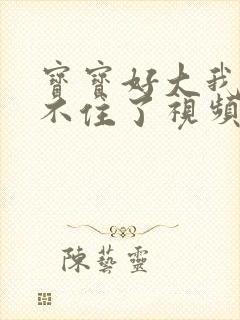 寶寶好大我
不住了視頻
陳藝靈